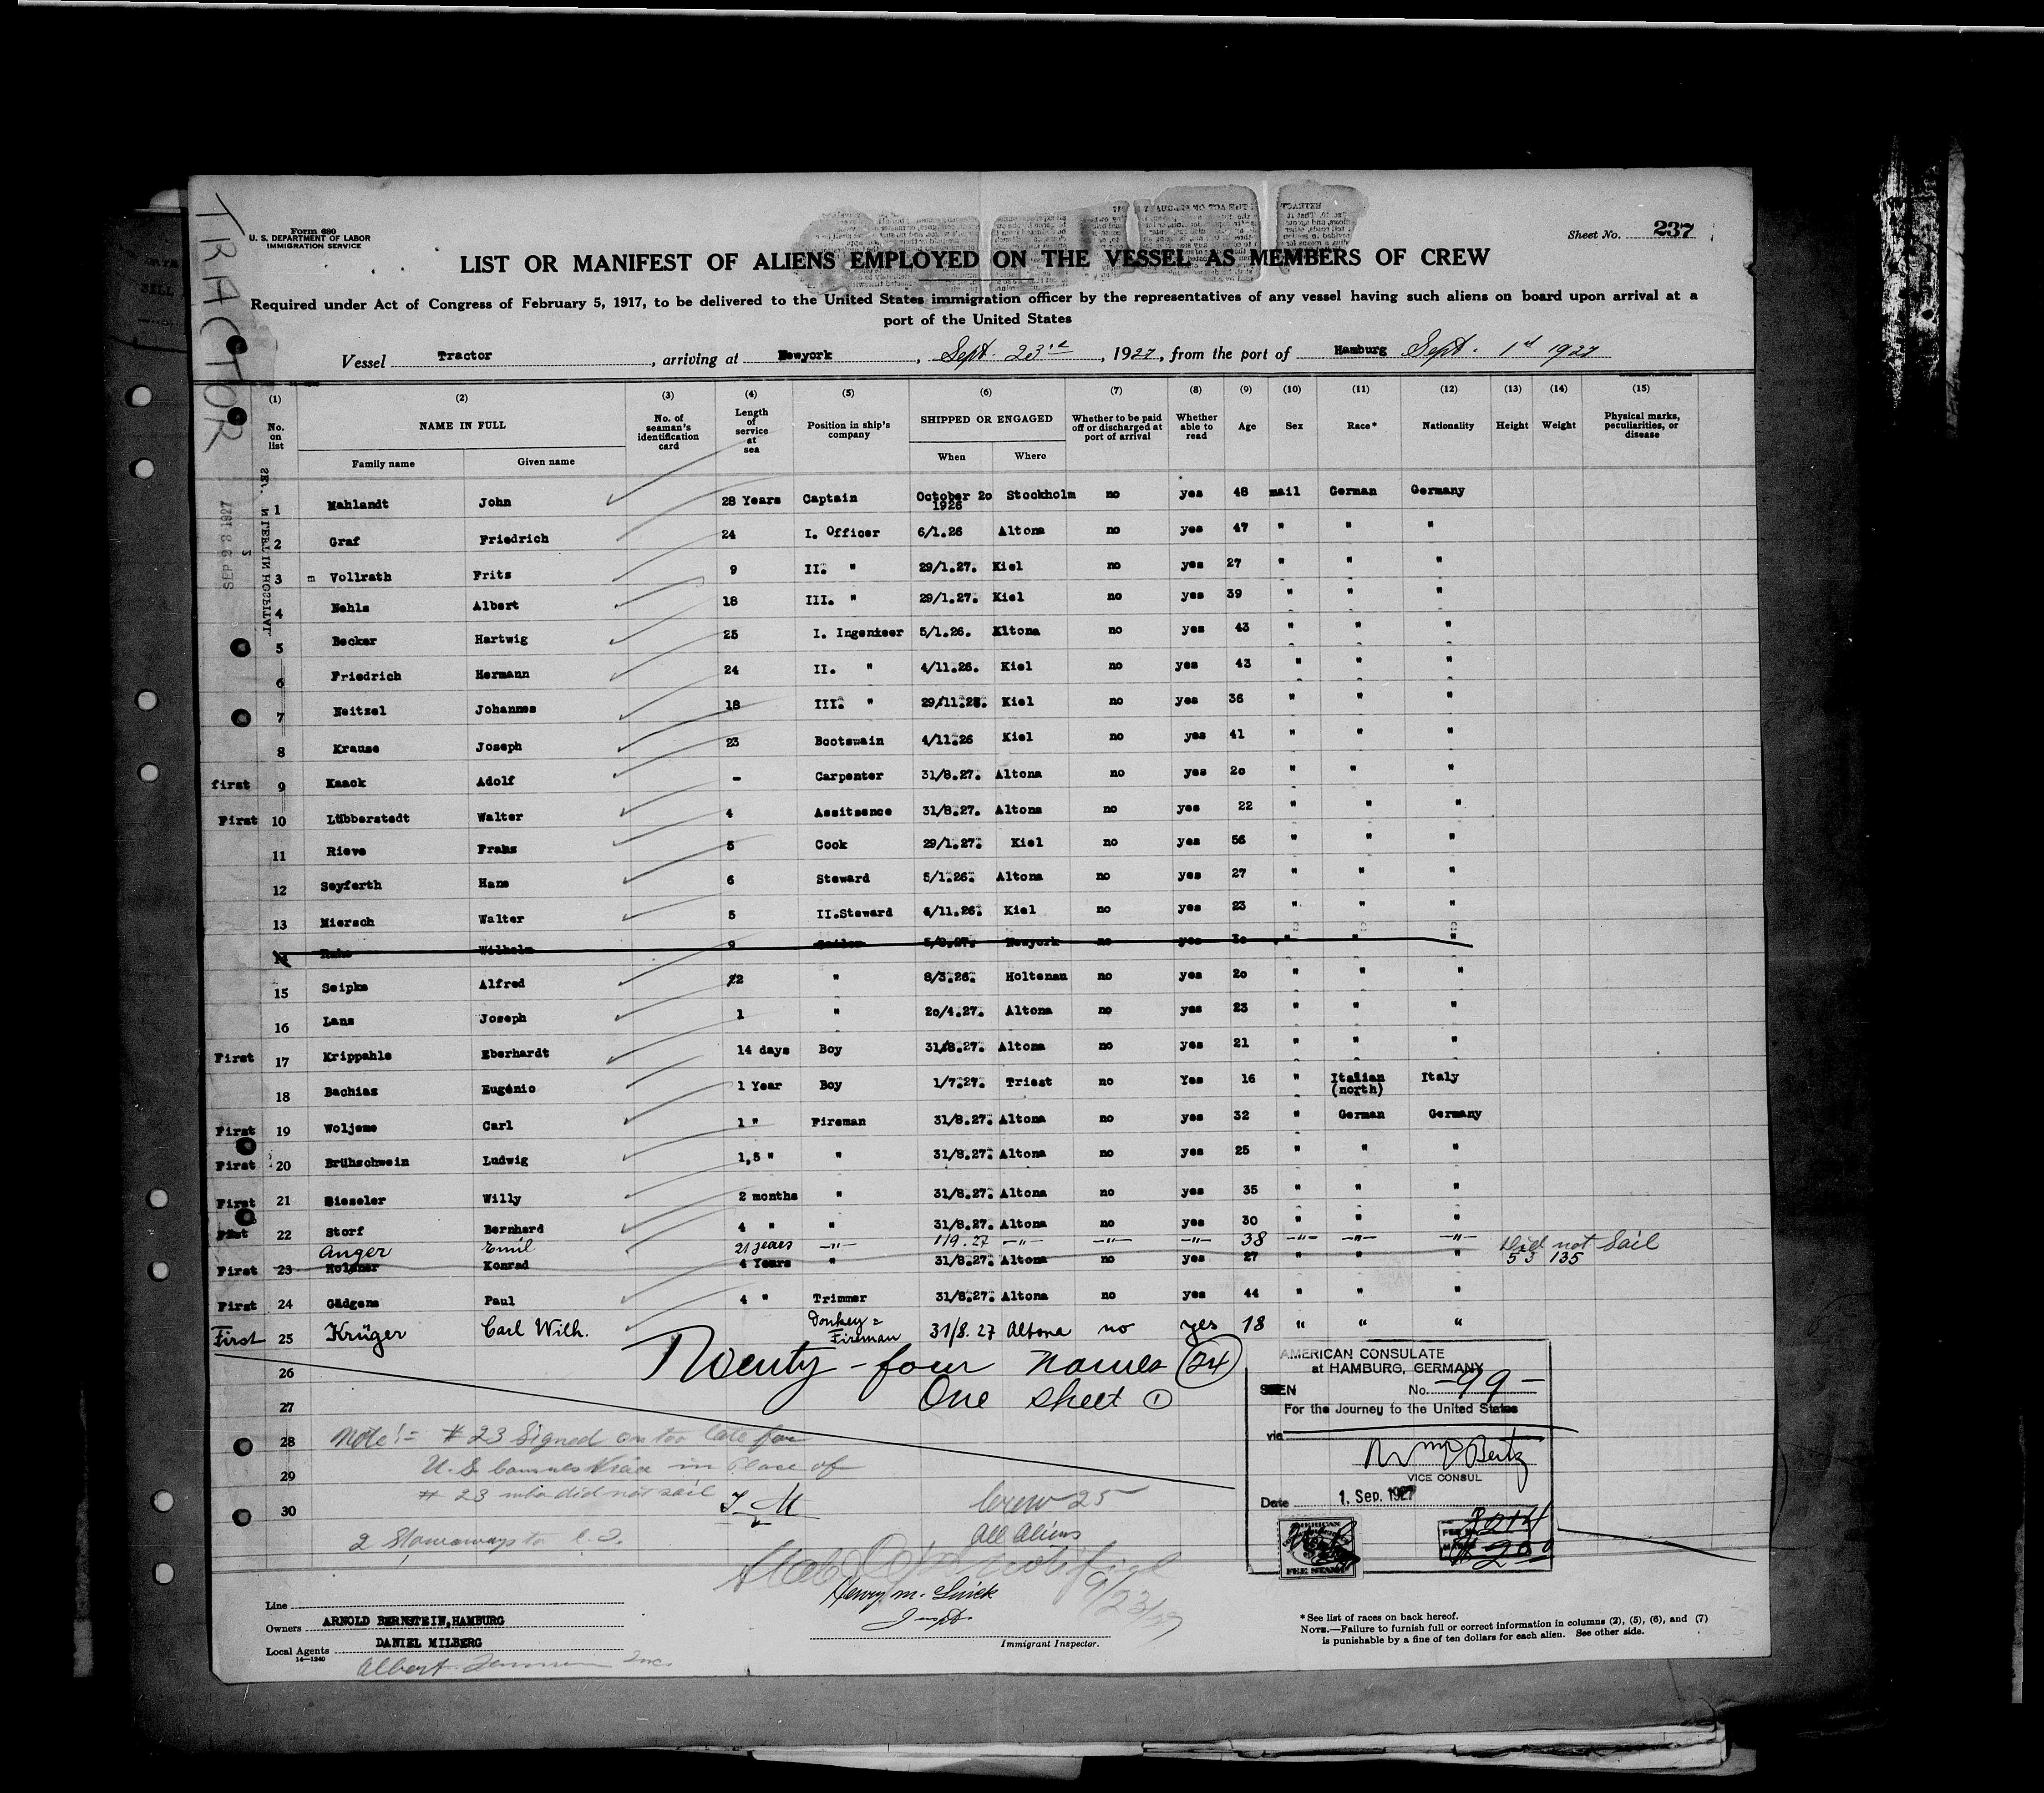 TRACTOR
Form 680
U. S. DEPARTMENT OF LABOR
IMMIGRATION SERVICE
Sheet No. 237
LIST OR MANIFEST OF ALIENS EMPLOYED ON THE VESSEL AS MEMBERS OF CREW
Required under Act of Congress of February 5, 1917, to be delivered to the United States immigration officer by the representatives of any vessel having such aliens on board upon arrival at a
port of the United States
Vessel Tractor, arriving at Newyork, Sept. 23rd, 1927, from the port of Hamburg Sept. 1st 1927
(1) (2) (3) (4) (5) (6) (7) (8) (9) (10) (11) (12) (13) (14) (15)
No. on list NAME IN FULL Family name Given name No. of seaman's identification card Length of service at sea Position in ship's company SHIPPED OR ENGAGED When Where Whether to be paid off or discharged at port of arrival Whether able to read Age Sex Race* Nationality Height Weight Physical marks, peculiarities, or disease
SEP 23 1927
1 Mahlandt John 28 Years Captain October 20 1926 Stockholm no yes 48 mail German Germany
2 Graf Friedrich 24 I. Officer 6/1.26 Altona no yes 47 " " "
3 m Vollrath Fritz 9 II. " 29/1.27. Kiel no yes 27 " " "
4 Nehls Albert 18 III. " 29/1.27. Kiel no yes 39 " " "
5 Becker Hartwig 25 I. Ingenieer 5/1.26. Altona no yes 43 " " "
6 Friedrich Hermann 24 II. " 4/11.26. Kiel no yes 43 " " "
7 Neitzel Johannes 18 III. " 29/11.26. Kiel no yes 36 " " "
8 Krause Joseph 23 Bootswain 4/11.26 Kiel no yes 41 " " "
first 9 Kaack Adolf - Carpenter 31/8.27. Altona no yes 20 " " "
First 10 Lübberstedt Walter 4 Assitsence 31/8.27. Altona no yes 22 " " "
11 Rieve Frahs 5 Cook 29/1.27. Kiel no yes 56 " " "
12 Seyferth Hans 6 Steward 5/1.26. Altona no yes 27 " " "
13 Miersch Walter 5 II.Steward 4/11.26. Kiel no yes 23 " " "
14 Wilhelm 9 Sailor Newyork no yes " " "
15 Seipke Alfred 2 " 8/3.26. Holtenau no yes 20 " " "
16 Lans Joseph 1 " 20/4.27. Altona no yes 23 " " "
First 17 Krippahle Eberhardt 14 days Boy 31/8.27. Altona no yes 21 " " "
18 Bachiaz Eugénio 1 Year Boy 1/7.27. Triest no Yes 16 " Italian (north) Italy
First 19 Woljeme Carl 1 " Fireman 31/8.27. Altona no yes 32 " German Germany
First 20 Brühschwein Ludwig 1,5 " " 31/8.27. Altona no yes 25 " " "
First 21 Bieseler Willy 2 months " 31/8.27. Altona no yes 35 " " "
First 22 Storf Bernhard 4 " " 31/8.27. Altona no yes 30 " " "
Anger Emil 21 years -"- 1/9.27 -"- -"- -"- 38 -"- -"- -"- Did not Sail
First 23 Holzner Konrad 4 Years " 31/8.27. Altona no yes 27 " " " 53 135
First 24 Gädgens Paul 4 " Trimmer 31/8.27. Altona no yes 44 " " "
First 25 Krüger Carl Wilh. Donkey = Fireman 31/8.27 Altona no yes 18 " " "
26
Twenty-four names (24)
27
One sheet 1
28 Note:= #23 Signed on too late for
29 U.S. Consuls Visa in Place of
# 23 who did not sail
30
Crew 25
All Aliens
2 Stowaways
Henry M.
Inspt.
9/23/27
AMERICAN CONSULATE
at HAMBURG, GERMANY
SEEN No. -99-
For the Journey to the United States
via
VICE CONSUL
Date 1. Sep. 1927
FEE STAMP
Line
Owners ARNOLD BERNSTEIN, HAMBURG
Local Agents DANIEL MILBERG
14—1240
Albert Inc.
Immigrant Inspector.
* See list of races on back hereof.
NOTE.—Failure to furnish full or correct information in columns (2), (5), (6), and (7)
is punishable by a fine of ten dollars for each alien. See other side.